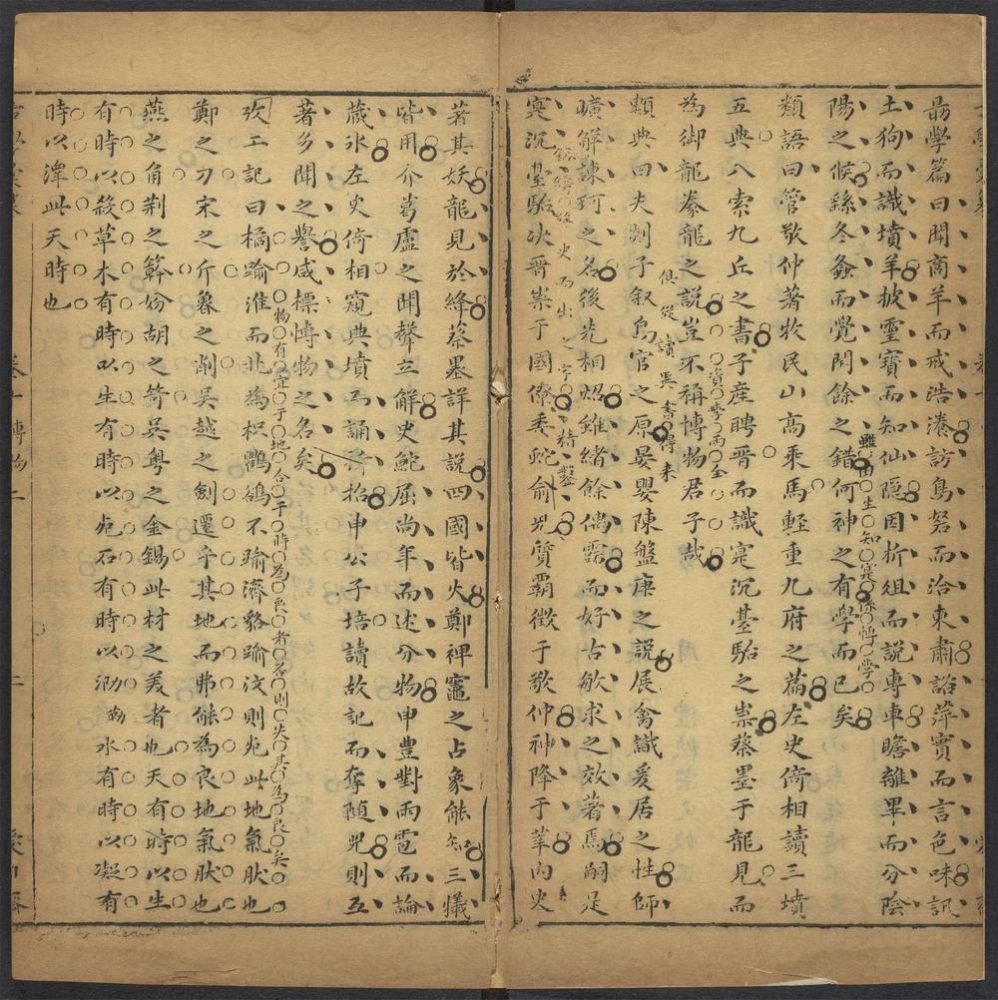 勗學篇曰聞商羊而戒浩瀁訪鳥砮而洽東肅諮萍實而言色味訊
土狗而識墳羊披靈寶而知仙隱因折俎而說專車瞻離畢而分陰
陽之候錄冬螽而覺閏餘之錯何神之有學而已矣
類語曰管敬仲著牧民山高乘馬輕重九府之篇左史倚相讀三墳
五典八索九丘之書子產聘晉而識寔沉臺駘之祟蔡墨于龍見而
為御龍豢龍之說豈不稱博物君子哉
俱從讀異書得來
類典曰夫剡子叙鳥官之原晏嬰陳盤庚之說展禽識爰居之性師
曠解諫珂之名後先相炤雖緒餘僑霱而好古敏求之效著馬嗣是
寔沉臺駘决晉祟于國僑委蛇俞兒質覇徵于敬仲神降于莘內史
著其妖龍見於絳蔡墨詳其說四國皆火鄭裨竈之占象能知三犧
皆用介葛盧之聞聲立解史鮀屈尚年而述分物申豐對雨雹而論
藏氷左史倚相窺典墳而誦祈招申公子培讀故記而奪隨兕則互
著多聞之譽咸標博物之名矣
攷工記曰橘踰淮而北為枳鸜鵒不踰濟貉踰汶則死此地氣肰也
物有宜于地合于時為良者否則失其為良矣
鄭之刀宋之斤魯之削吳越之劍遷乎其地而弗能為良地氣肰也
燕之角荆之簳妢胡之笴吳粤之金錫此材之美者也天有時以生
有時以殺草木有時以生有時以死石有時以泐水有時以凝有
時以澤此天時也
卷十博物
二